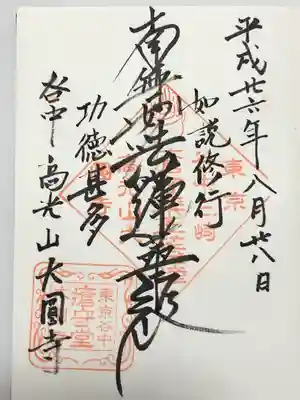 平成廿六年八月廿八日
如説修行
南無妙法蓮華経
功徳甚多
谷中高光山大圓寺
東京谷中
瘡守堂